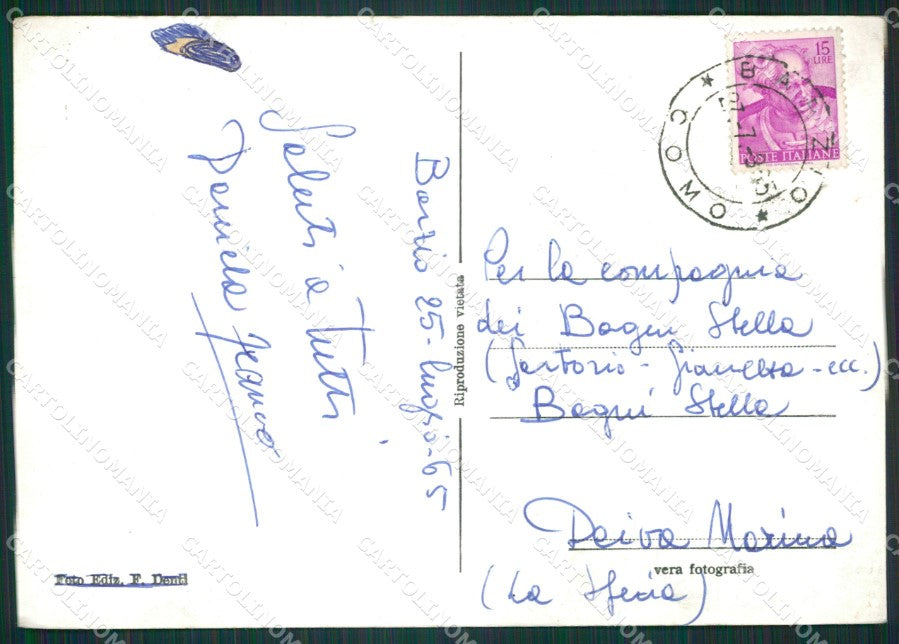 Barzio 25-luglio-65
Saluti a Tutti
Daniela Franco
Foto Ediz. F. Dend
Riproduzione vietata
15
LIRE
POSTE ITALIANE
BARZIO
COMO
Per la compagnia
dei Bagni Stella
(Sartorio - Giancesa - ecc.)
Bagni Stella
Deiva Marina
vera fotografia
(La Spezia)
CARTOLINOMANIA